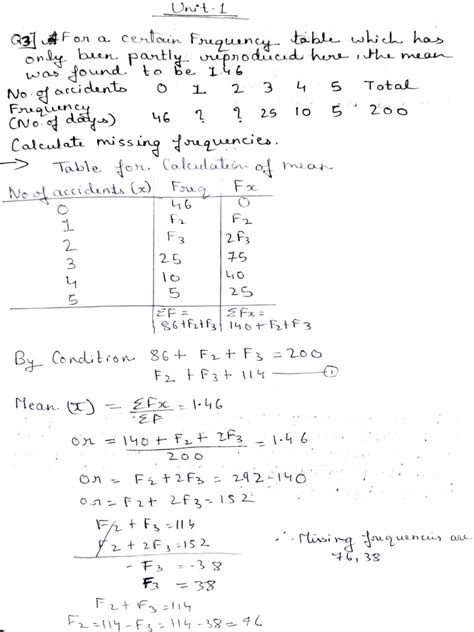 Unit-1
Q3] For a certain Frequency table which has
only been partly reproduced here, the mean
was found to be 1.46
No. of accidents 0 1 2 3 4 5 Total
Frequency
(No. of days) 46 ? ? 25 10 5 200
Calculate missing frequencies.
→ Table for Calculation of mean
No of accidents (x) Freq Fx
0 46 0
1 F2 F2
2 F3 2F3
3 25 75
4 10 40
5 5 25
ΣF = ΣFx =
86+F2+F3 140+F2+F3
By Condition 86+ F2 + F3 = 200
F2 + F3 + 114 ——— ①
Mean (x̄) = ΣFx/ΣF = 1.46
or = 140 + F2 + 2F3 / 200 = 1.46
or = F2 + 2F3 = 292-140
or = F2 + 2F3 = 152
F2 + F3 = 114
F2 + 2F3 = 152
- F3 = -38
F3 = 38
∴ Missing frequencies are
76, 38
F2 + F3 = 114
F2 = 114 - F3 = 114 - 38 = 76